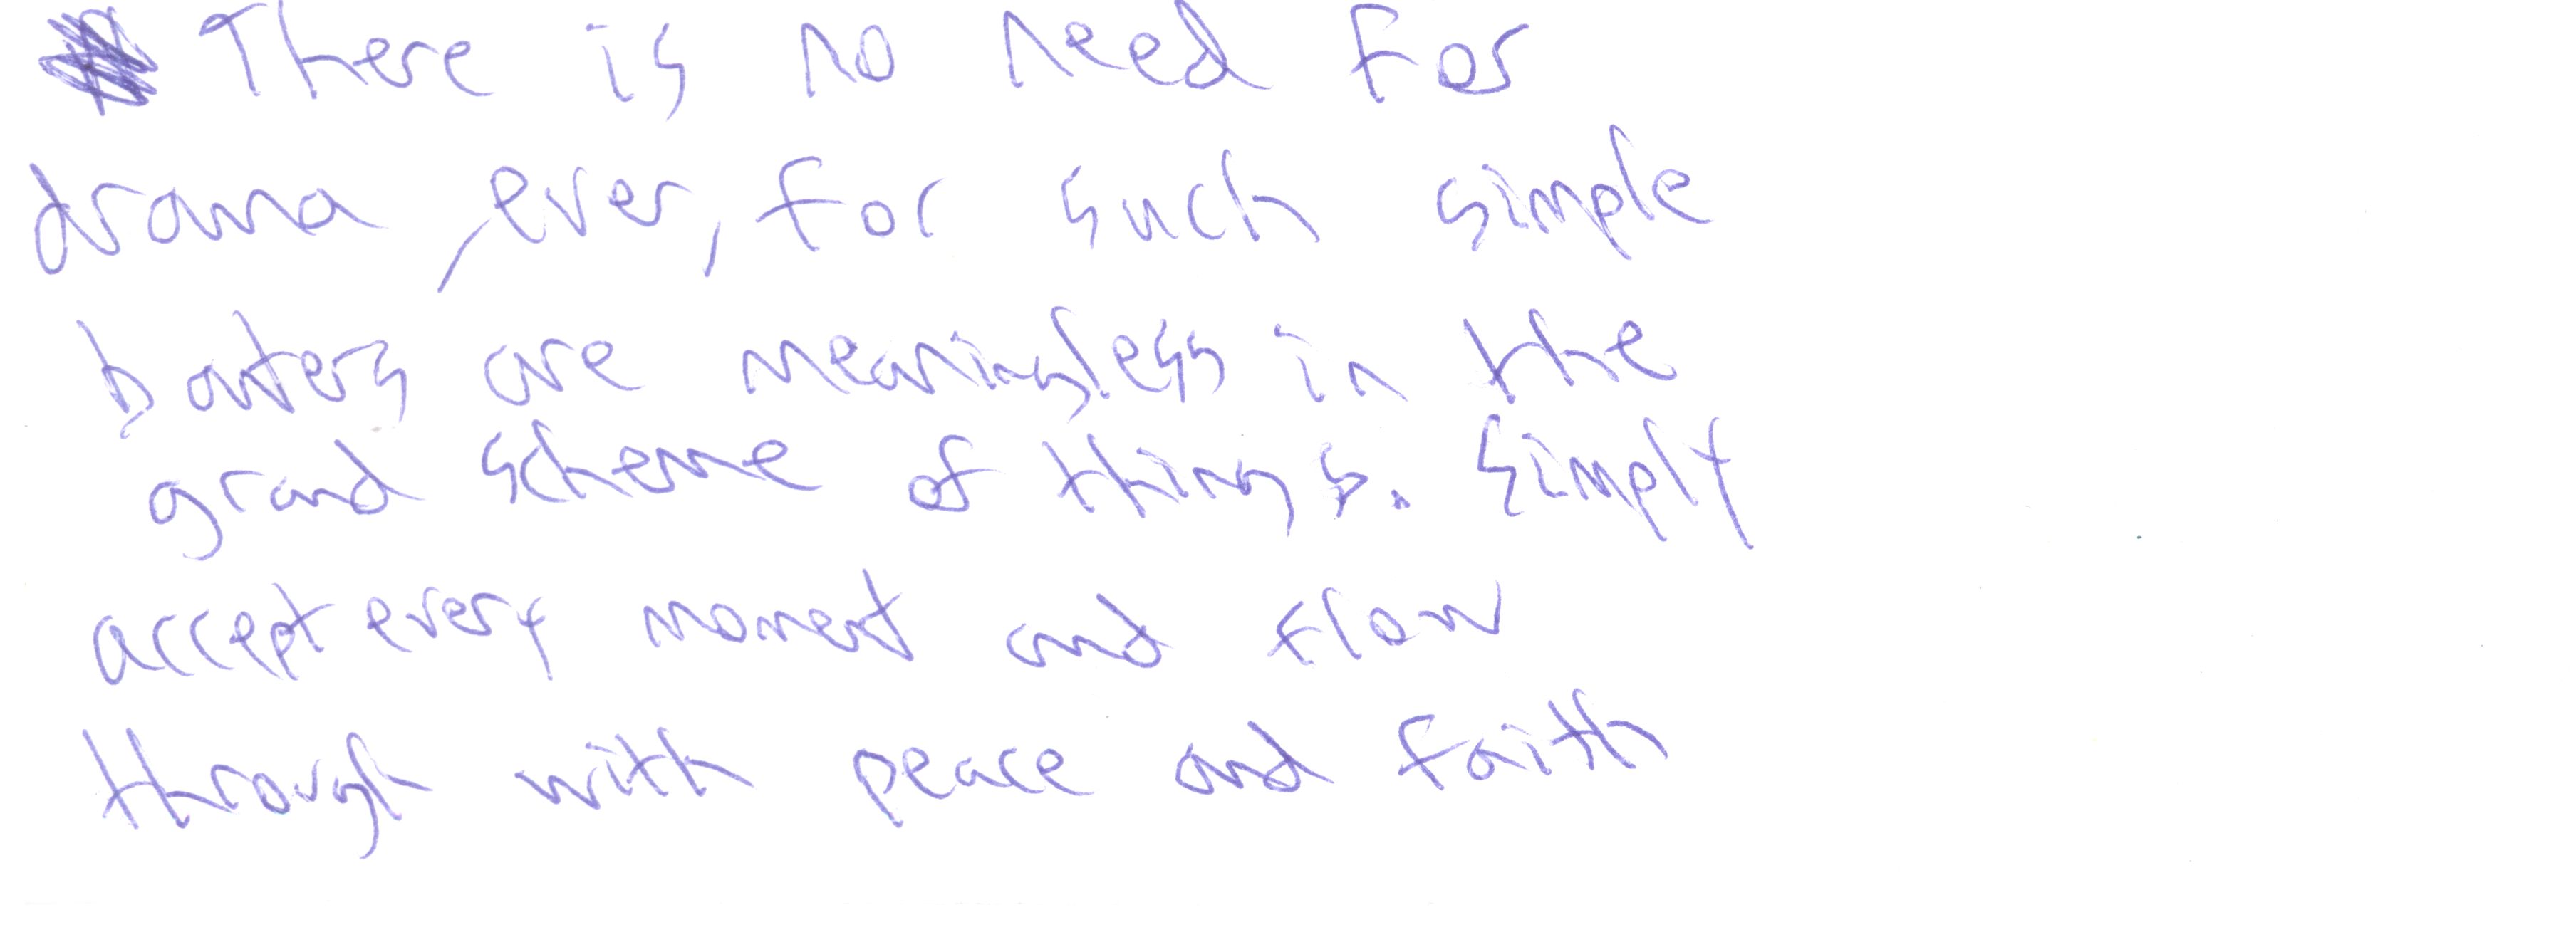 There is no need for
drama, ever, for such simple
banters are meaningless in the
grand scheme of things. Simply
accept every moment and flow
through with peace and faith